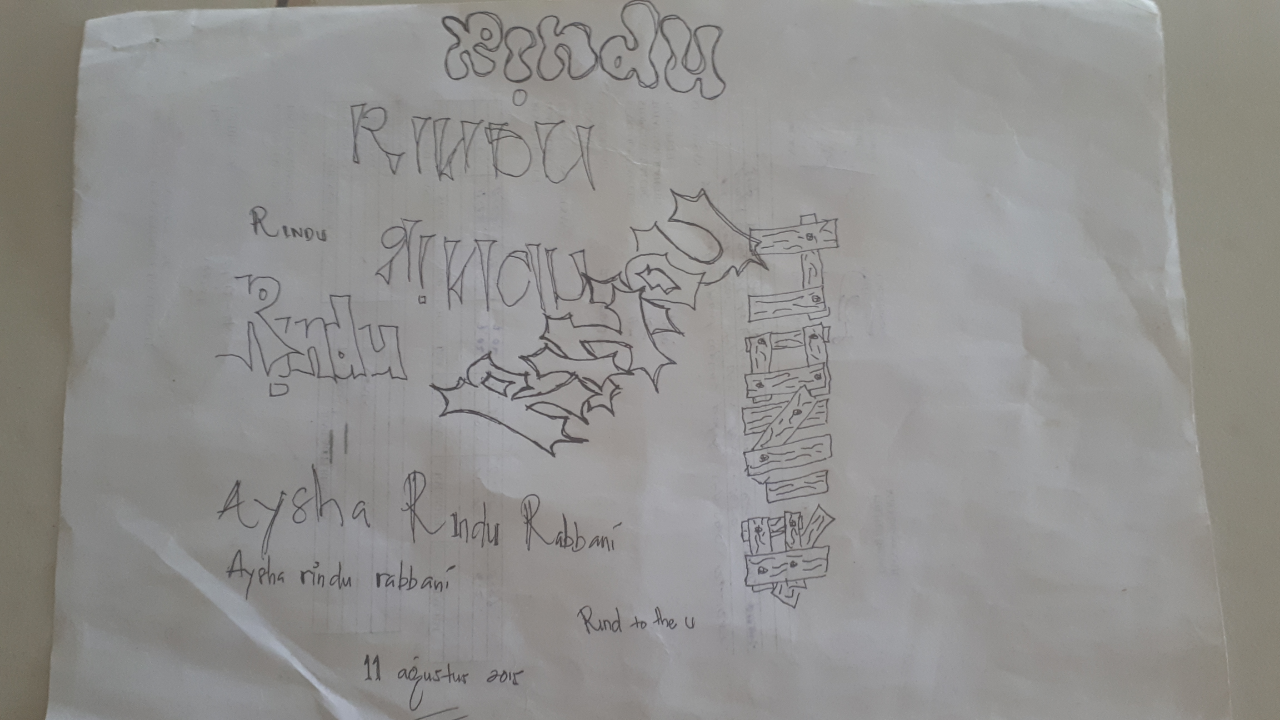 Rindu
RINDU
RINDU
Rindu
Rindu
RINDU
UDNIR
Aysha Rindu Rabbani
Aysha rindu rabbani
Rind to the u
11 agustus 2015